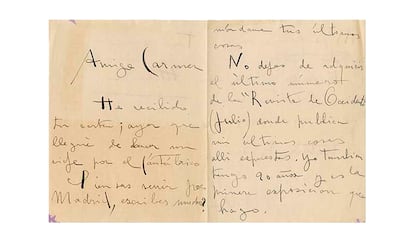 Amiga Carmen
He recibido
tu carta; ayer que
llegué de hacer un
viaje por el Cantábrico
Piensas venir por
Madrid, escribes mucho?
mándame tus últimas
cosas
No dejes de adquirir
el último número
de la "Revista de Occidente
(Julio) donde publica
mi últimas cosas
alli expuestas. Yo tambien
tengo 90 años y es la
primera exposicion que
hago.